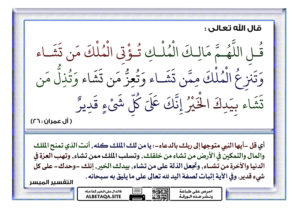 قال الله تعالى :
قُلِ اللَّهُمَّ مَالِكَ الْمُلْكِ تُؤْتِي الْمُلْكَ مَن تَشَاء
وَتَنزِعُ الْمُلْكَ مِمَّن تَشَاء وَتُعِزُّ مَن تَشَاء وَتُذِلُّ مَن
تَشَاء بِيَدِكَ الْخَيْرُ إِنَّكَ عَلَىَ كُلِّ شَيْءٍ قَدِيرٌ
( آل عمران : ٢٦ )
أي قل -أيها النبي متوجها إلى ربك بالدعاء-: يا من لك الملك كله, أنت الذي تمنح الملك
والمال والتمكين في الأرض من تشاء من خلقك, وتسلب الملك ممن تشاء, وتهب العزة في
الدنيا والآخرة من تشاء, وتجعل الذلة على من تشاء, بيدك الخير, إنك -وحدك- على كل
شيء قدير, وفي الآية إثبات لصفة اليد لله تعالى على ما يليق به سبحانه.
التفسير الميسر
ALBETAQA.SITE